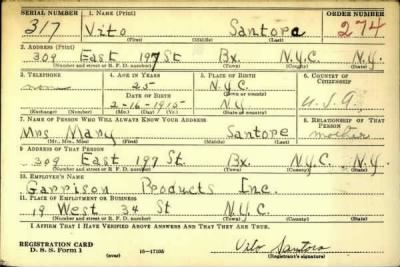 SERIAL NUMBER 1. NAME (Print) ORDER NUMBER
317 Vito Santora 274
(First) (Middle) (Last)
2. ADDRESS (Print)
309 East 197 St Bx. N.Y.C. N.Y.
(Number and street or R. F. D. number) (Town) (County) (State)
3. TELEPHONE 4. AGE IN YEARS 5. PLACE OF BIRTH 6. COUNTRY OF CITIZENSHIP
none 25 N.Y.C.
DATE OF BIRTH (Town or county)
2-16-1915 N.Y. U.S.A
(Exchange) (Number) (Mo.) (Day) (Yr.) (State or country)
7. NAME OF PERSON WHO WILL ALWAYS KNOW YOUR ADDRESS 8. RELATIONSHIP OF THAT PERSON
Mrs Mary Santore mother
(Mr., Mrs., Miss) (First) (Middle) (Last)
9. ADDRESS OF THAT PERSON
309 East 197 St. Bx. N.Y.C N.Y.
(Number and street or R. F. D. number) (Town) (County) (State)
10. EMPLOYER'S NAME
Garrison Products Inc.
11. PLACE OF EMPLOYMENT OR BUSINESS
19 West 34 St N.Y.C.
(Number and street or R. F. D. number) (Town) (County) (State)
I AFFIRM THAT I HAVE VERIFIED ABOVE ANSWERS AND THAT THEY ARE TRUE.
REGISTRATION CARD
D. S. S. Form 1 (over) 16-17105 Vito Santora
(Registrant's signature)